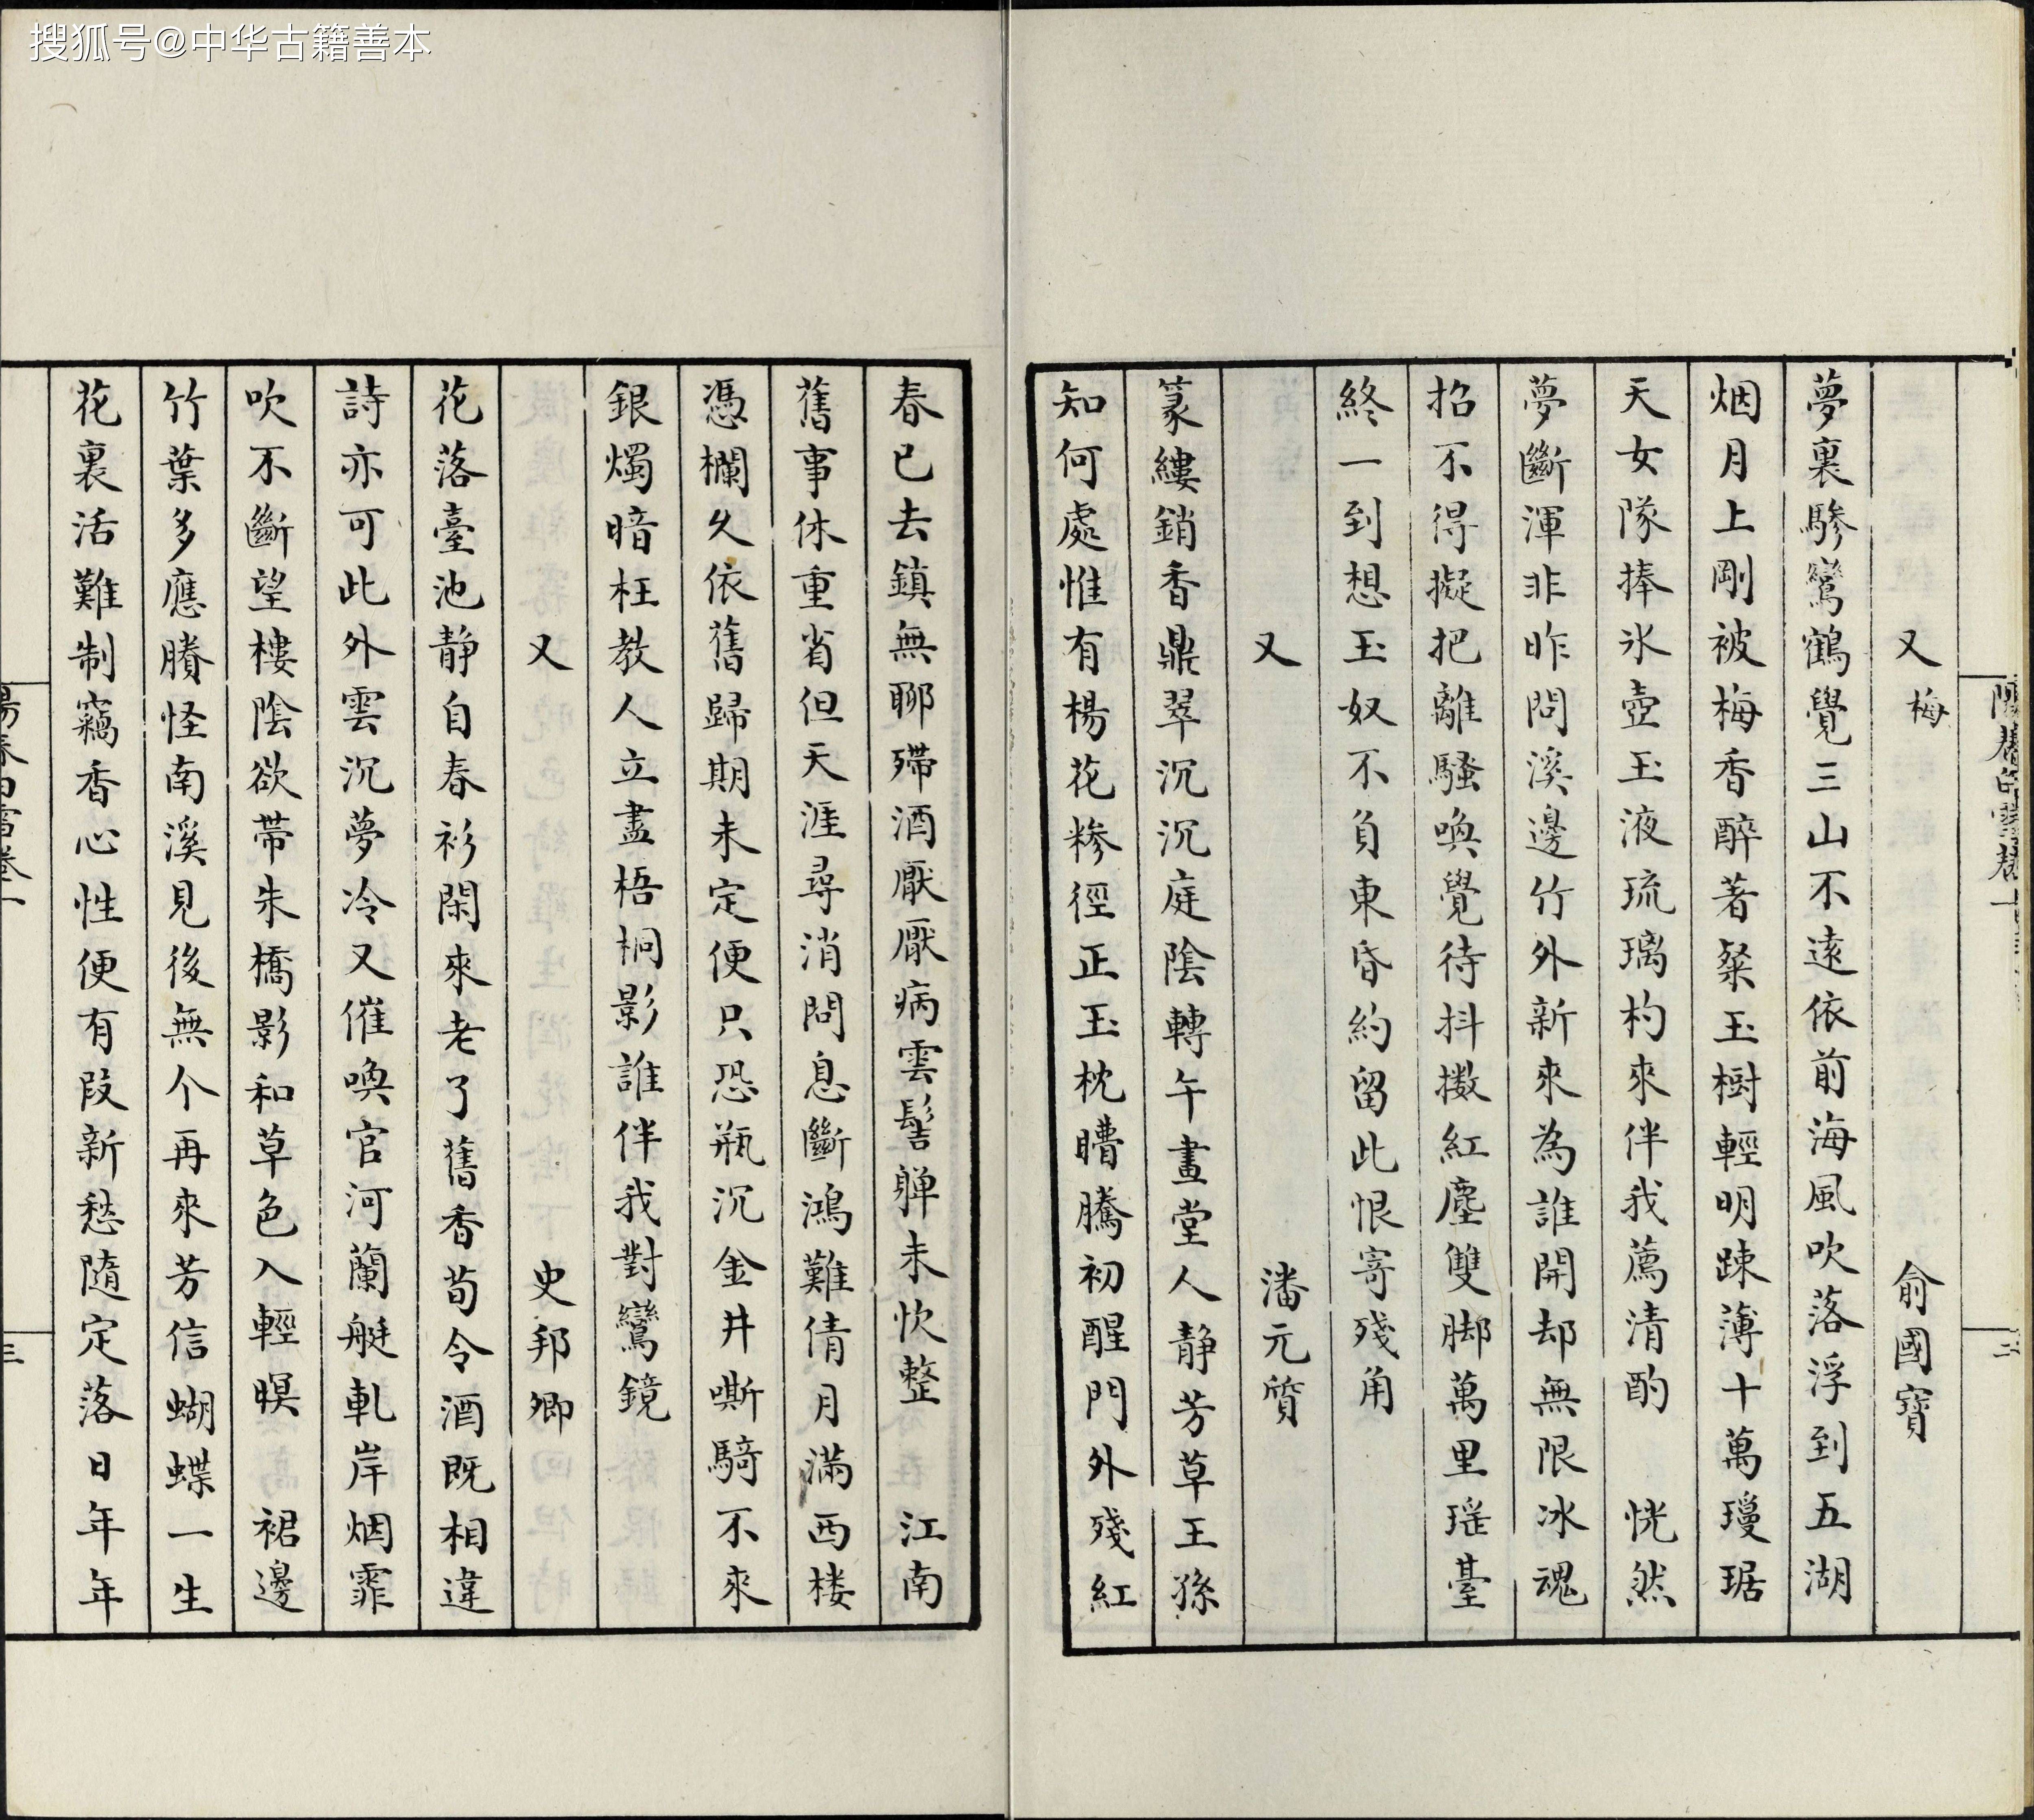 搜狐号@中华古籍善本
又 梅 俞國寶
夢裏驂鸞鶴覺三山不遠依前海風吹落浮到五湖
烟月上剛被梅香醉著粲玉樹輕明踈薄十萬瓊琚
天女隊捧氷壺玉液琉璃杓來伴我薦清酌 恍然
夢斷渾非昨問溪邊竹外新來為誰開却無限冰魂
招不得擬把離騷喚覺待抖擻紅塵雙脚萬里瑶臺
終一到想玉奴不負東昏約留此恨寄殘角
又 潘元質
篆縷銷香鼎翠沉沉庭陰轉午畫堂人静芳草王孫
知何處惟有楊花糝徑正玉枕瞢騰初醒門外殘紅
春已去鎮無聊殢酒厭厭病雲髻亸未忺整 江南
舊事休重省但天涯尋消問息斷鴻難倩月滿西楼
憑欄久依舊歸期未定便只恐瓶沉金井嘶騎不來
銀燭暗枉教人立盡梧桐影誰伴我對鸞鏡
又 史邦卿
花落臺池静自春衫閑來老了舊香荀令酒既相違
詩亦可此外雲沉夢冷又催喚官河蘭艇軋岸烟霏
吹不斷望樓陰欲帶朱橋影和草色入輕暝 裙邊
竹葉多應賸怪南溪見後無个再來芳信蝴蝶一生
花裏活難制竊香心性便有段新愁隨定落日年年